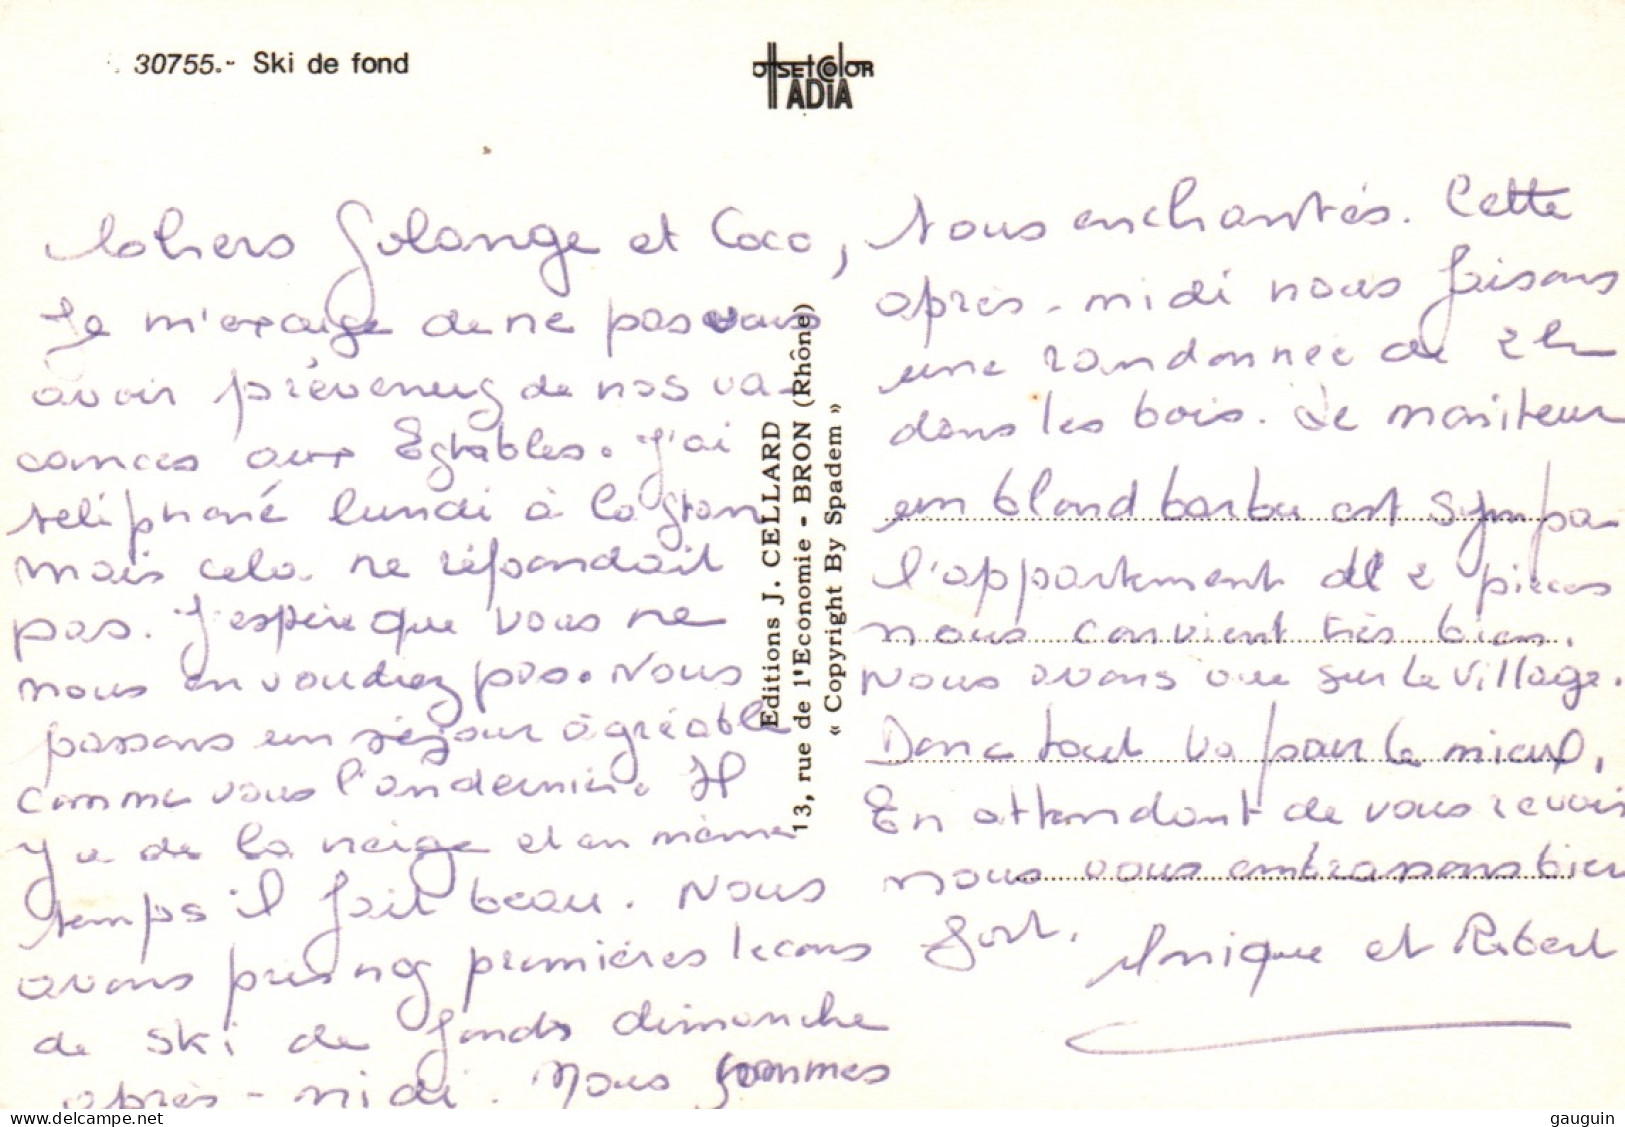 30755.- Ski de fond
OffsetColor
ADIA
chers Solange et Coco,
Je m'excuse de ne pas vous
avoir prévenus de nos va-
cances aux Egtables. J'ai
téléphoné lundi à la
mais cela ne répondait
pas. J'espère que vous ne
nous en voudrez pas. Nous
passons un séjour agréable
comme vous l'an dernier. Il
y a de la neige et en même
temps il fait beau. Nous
avons pris nos premières lecons
de ski de fonds dimanche
après-midi. Nous sommes
tous enchantés. Cette
après-midi nous faisons
une randonnée de 2 h
dans les bois. Le moniteur
un blond barbu est sympa
l'appartement de 2 pièces
nous convient très bien.
Nous avons vue sur le village.
Donc tout va pour le mieux.
En attendant de vous revoir
nous vous embrassons bien
fort. Monique et Robert
Editions J. CELLARD
13, rue de l'Economie - BRON (Rhône)
« Copyright By Spadem »
gauguin